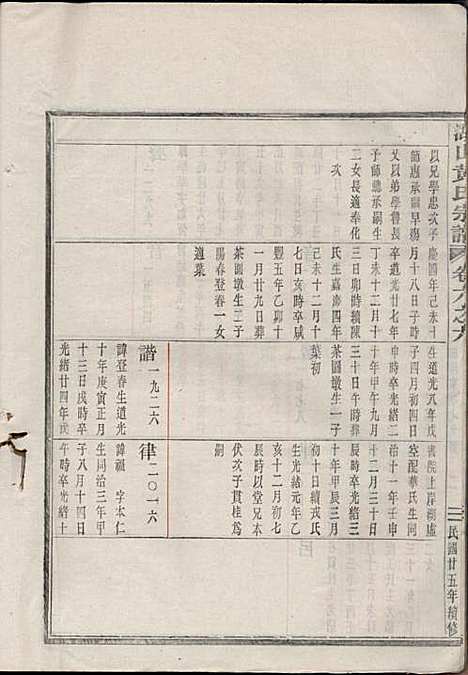 黃氏宗譜
卷八之九
民國廿五年續修
以兄學忠次子
師惠承嗣早殤
又以弟學魯長
子師聽承嗣生
二女長適奉化
次
慶國年己未十
月十八日子時
卒道光廿七年
丁未十二月十
三日卯時續陳
氏生嘉慶四年
己未十二月十
七日亥時卒咸
豐五年乙卯十
一月廿九日葬
茶園墩生二子
陽春登春一女
適葉
生道光八年戊
子四月初四日
申時卒光緒二
十年甲午九月
三十日午時葬
茶園墩生一子
葉初
諧一九二六
諱登春生道光
十年庚寅正月
十三日戌時卒
光緒廿四年戊
書院上岸湖虛
空配華氏生同
治十一年壬申
十二月三十日
辰時卒光緒三
十年甲辰三月
初十日續戎氏
生光緒元年乙
亥十二月初七
辰時以堂兄本
伏次子貫桂為
嗣
律二〇一六
諱福 字本仁
生同治三年甲
子八月十四日
午時卒光緒十